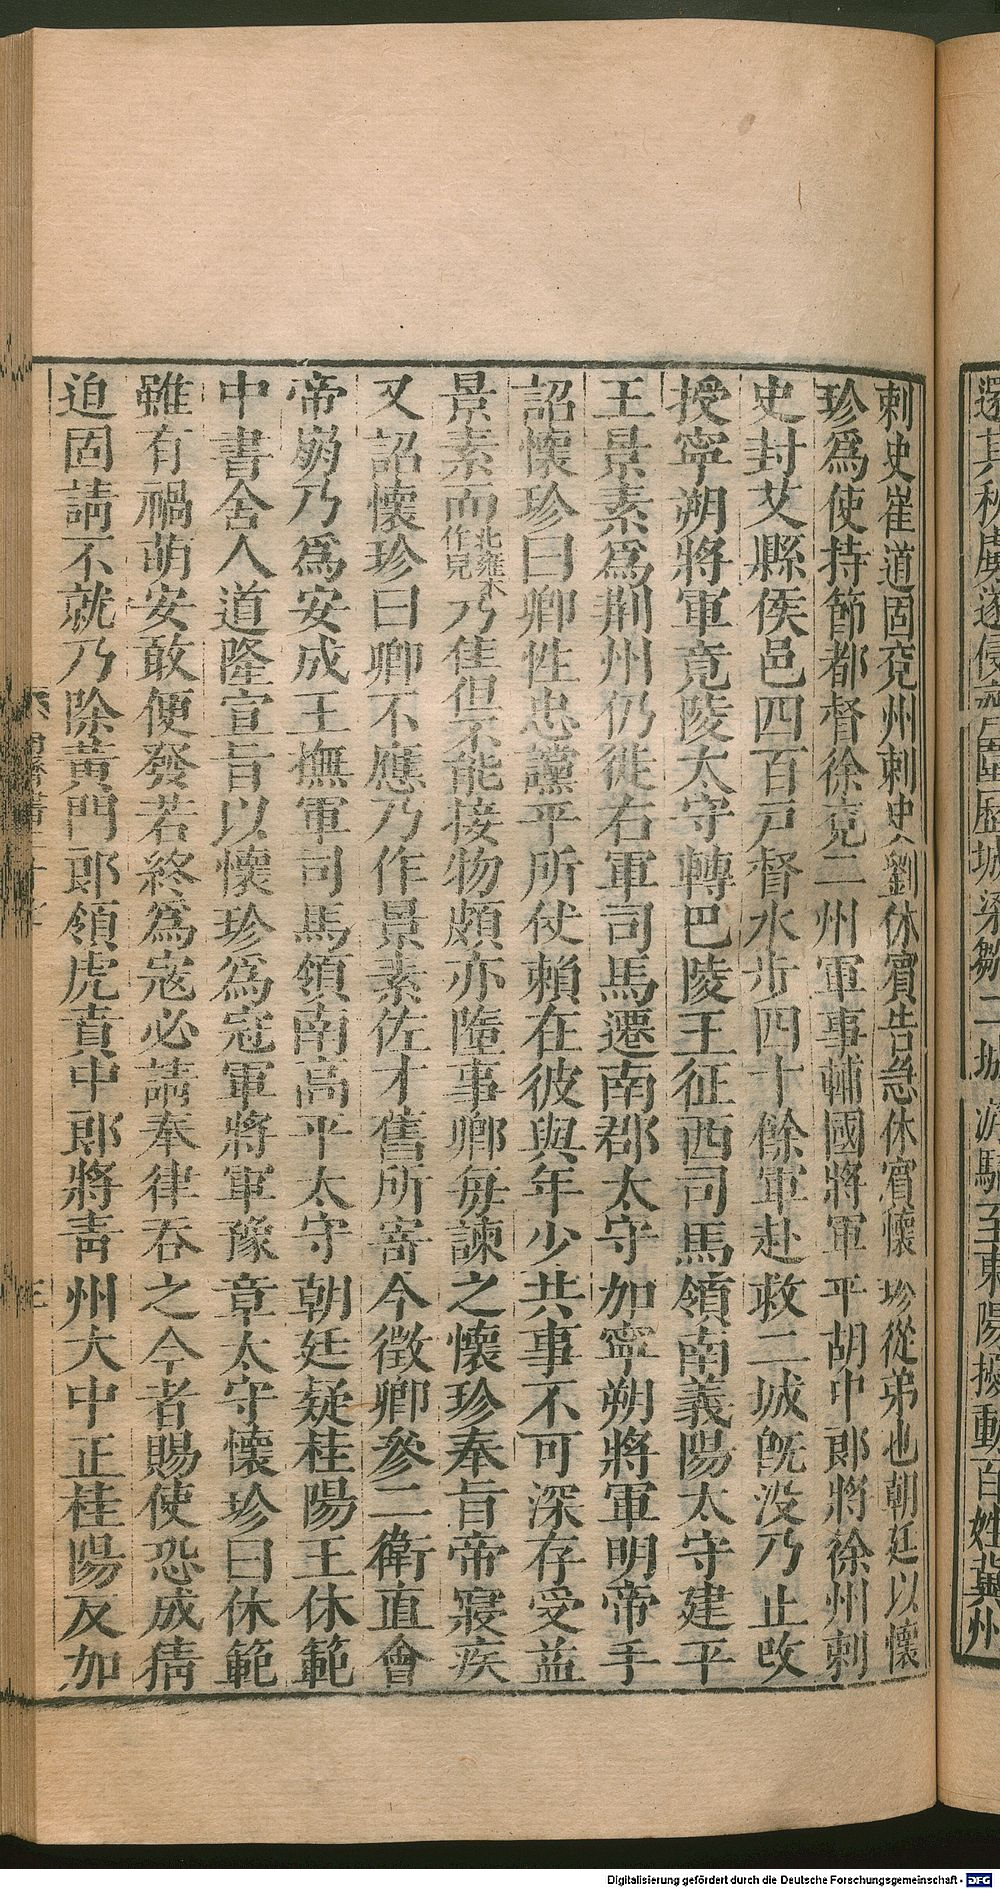 還其秋虜遂侵齊圍歷城梁鄒二城游騎至東陽擾動百姓冀州
刺史崔道固兗州刺史劉休賓告急休賓懷珍從弟也朝廷以懷
珍爲使持節都督徐兗二州軍事輔國將軍平胡中郎將徐州刺
史封艾縣侯邑四百戶督水步四十餘軍赴救二城旣沒乃止改
授寧朔將軍竟陵太守轉巴陵王征西司馬領南義陽太守建平
王景素爲荆州仍徙右軍司馬遷南郡太守加寧朔將軍明帝手
詔懷珍曰卿性忠讜平所仗賴在彼與年少共事不可深存受益
景素而北雍本作兒乃佳但不能接物頗亦墮事卿每諫之懷珍奉旨帝寢疾
又詔懷珍曰卿不應乃作景素佐才舊所寄今徵卿參二衛直會
帝崩乃爲安成王撫軍司馬領南高平太守朝廷疑桂陽王休範
中書舍人道隆宣旨以懷珍爲冠軍將軍豫章太守懷珍曰休範
雖有禍萌安敢便發若終爲寇必請奉律吞之今者賜使恐成猜
迫固請不就乃除黃門郎領虎賁中郎將靑州大中正桂陽反加
Digitalisierung gefördert durch die Deutsche Forschungsgemeinschaft - DFG